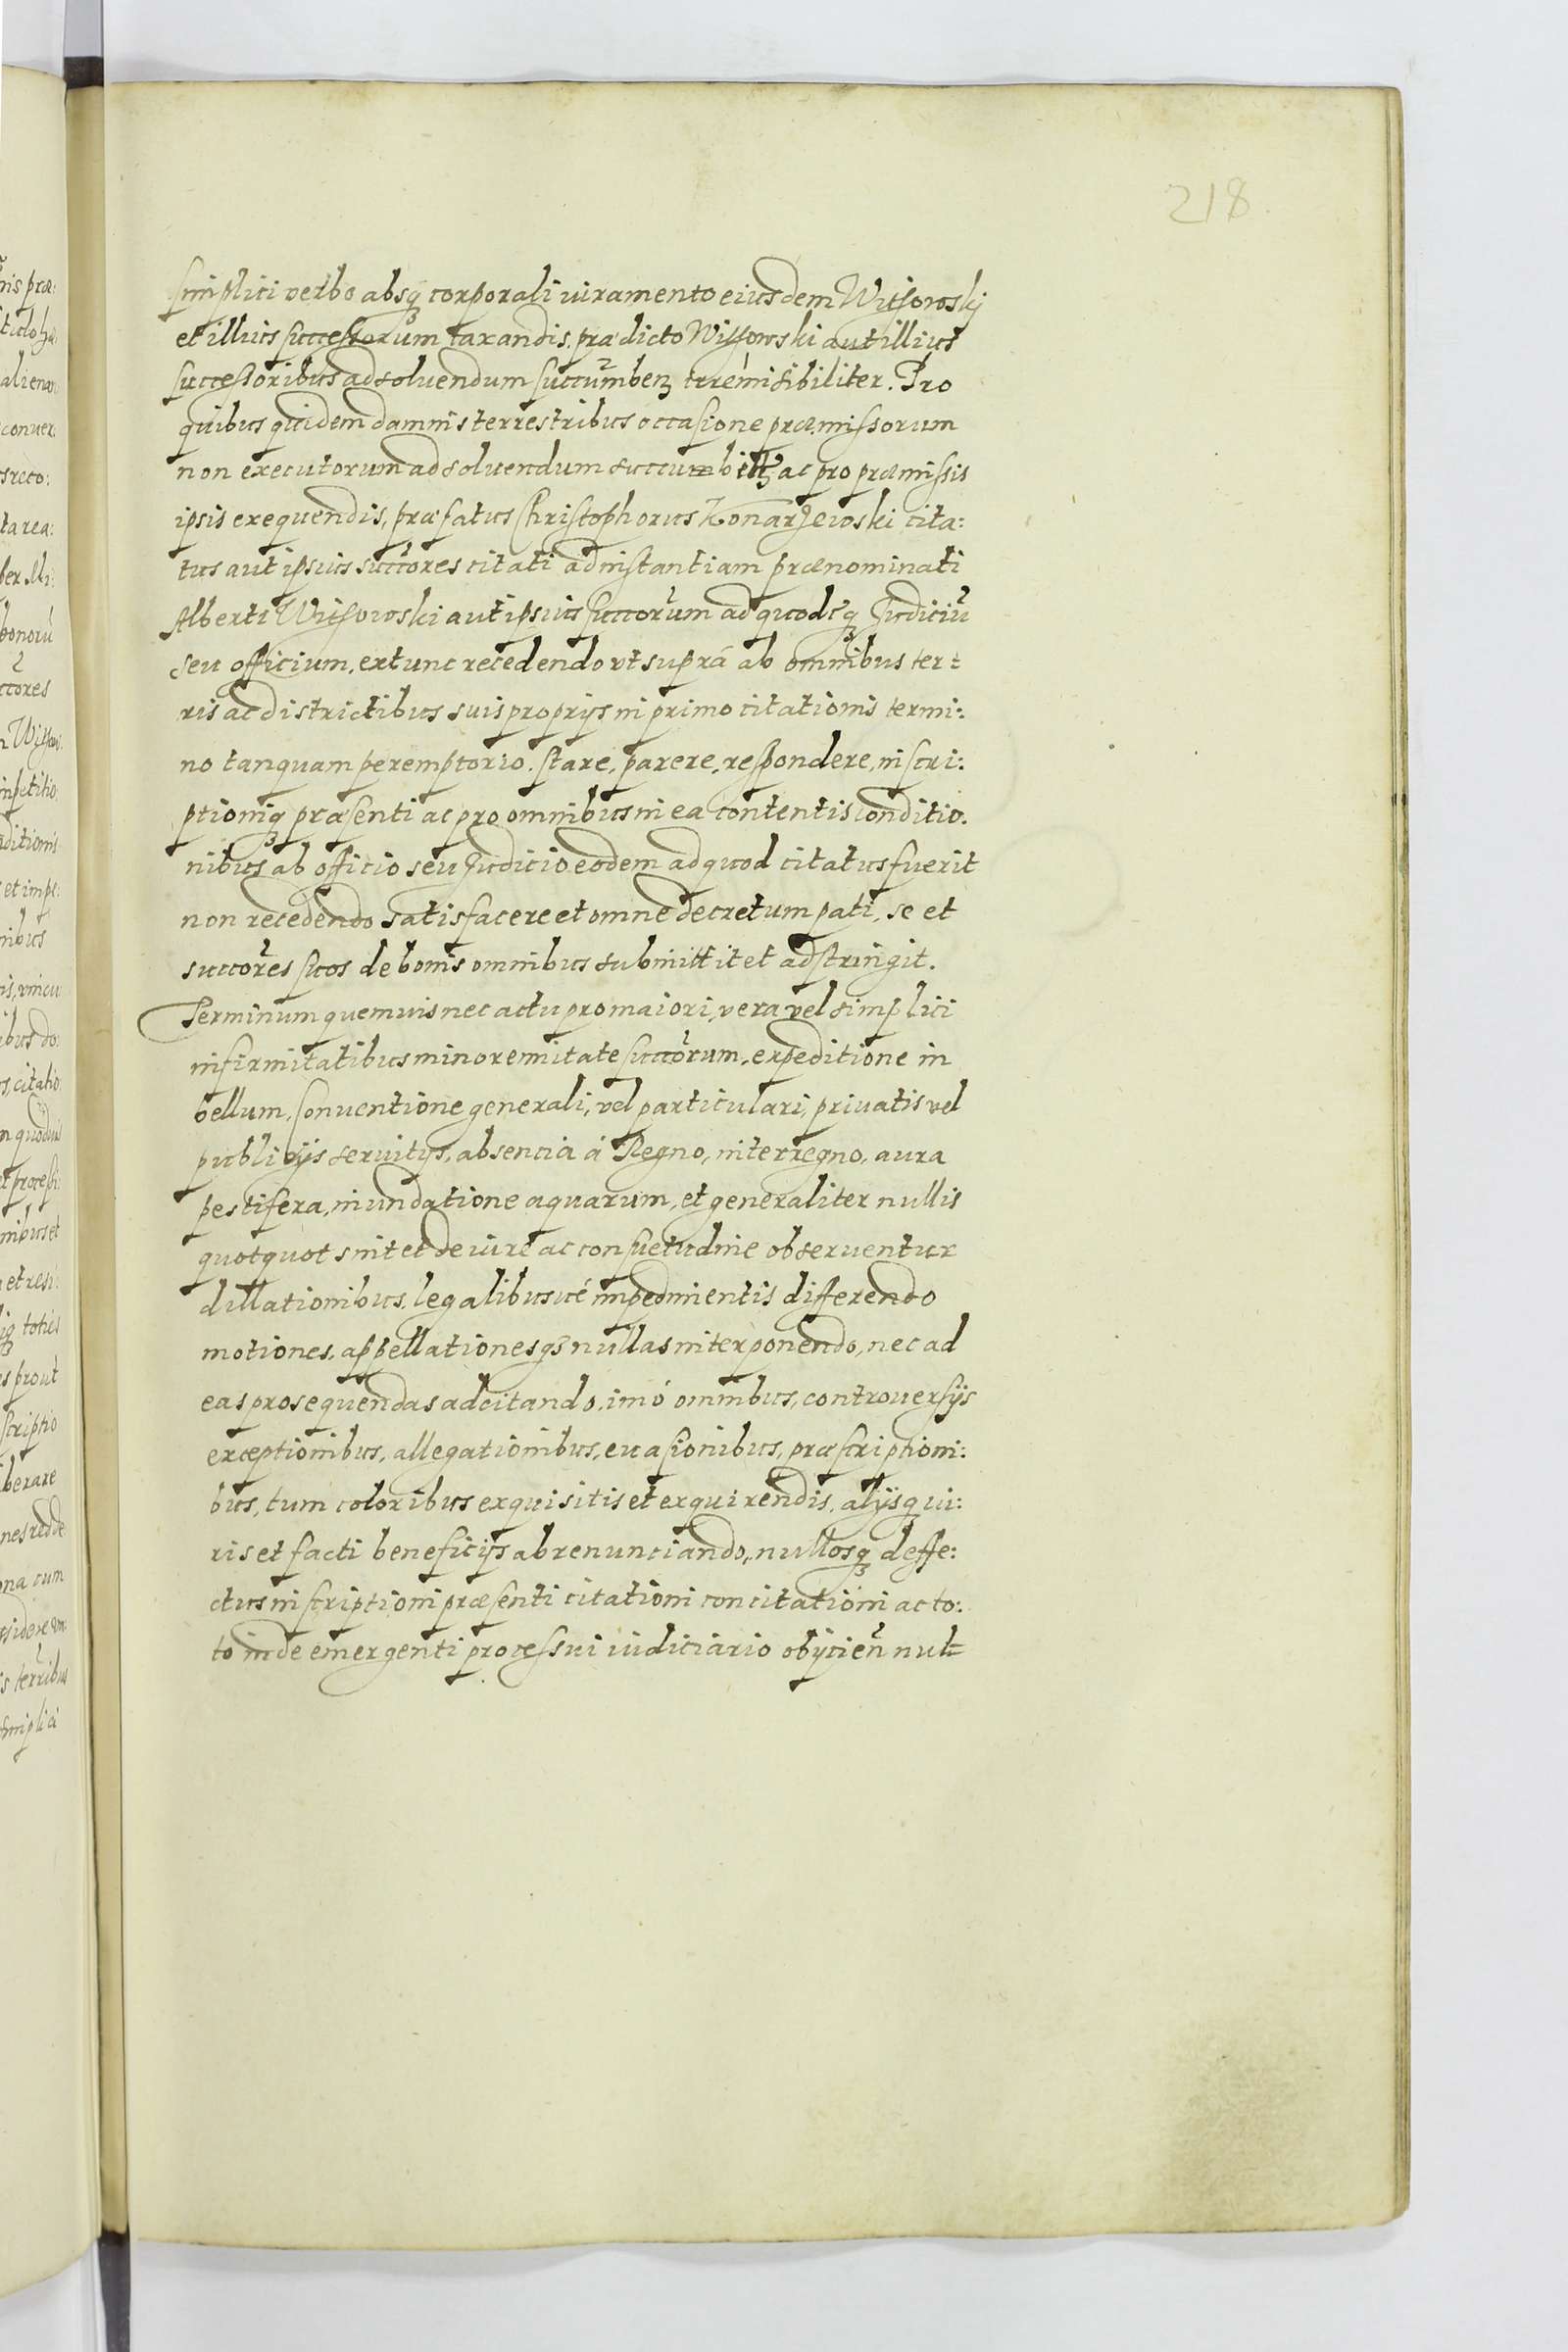 218.
simplici verbo absq₃ corporali iuramento eiusdem Wilsowskj
et illius successorum taxandis. prædicto Wilsowski aut illius
successoribus ad soluendum succumben̄ irremisibiliter. Pro
quibus quidem damnis terrestribus occasione præmissorum
non executorum ad soluendum succumbitꝫ ac pro præmissis
ipsis exequendis, præfatus Christophorus Konarzewski cita:
tus aut ipsius succ̄ores citati ad instantiam prænominati
Alberti Wilsowski aut ipsius succ̄orum ad quodcq₃ Judiciū
seu officium, extunc recedendo vt suprá ab omnibus ter:
ris ac districtibus suis proprijs in primo citationis termi:
no tanquam peremptorio. stare, parere, respondere, inscri:
ptioniq₃ præsenti ac pro omnibus in ea contentis conditio.
nibus ab officio seu Judicio eodem ad quod citatus fuerit
non recedendo satisfacere et omne decretum pati, se et
succ̄ores suos de bonis omnibus submittit et adstringit.
Terminum quemuis nec actu pro maiori, vera vel simplici
infirmitatibus minorennitate succ̄orum, expeditione in
bellum, Conuentione generali, vel particulari, priuatis vel
publicijs seruitijs, absencia á Regno, interregno, aura
pestifera, inundatione aquarum, et generaliter nullis
quotquot sint et de iure ac consuetudine obseruentur
dillationibus, legalibusué impedimentis differendo
motiones, appellationesq₃ nullas interponendo, nec ad
eas prosequendas adcitando, imó omnibus, controuersijs
exceptionibus, allegationibus, euasionibus, præscriptioni:
bus, tum coloribus exquisitis et exquirendis, alijsq iu:
ris et facti beneficijs abrenunciando, nullosq₃ deffe:
ctus inscriptioni præsenti citationi concitationi ac to:
to inde emergenti processui iudiciario obijcien̄ nul-